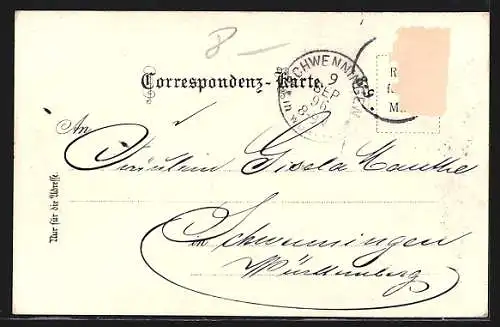 8 —
Correspondenz-Karte.
SCHWENNINGEN
9
SEP
96
An
Fräulein Gisela Mauthe
in Schwenningen
Württemberg
Nur für die Adresse.